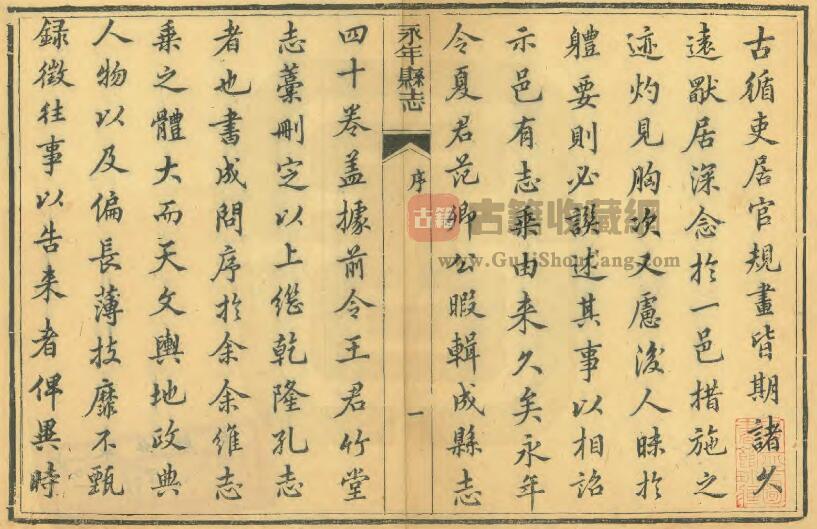 古循吏居官規畫皆期諸久
遠厭居深念於一邑措施之
迹灼見胸次又慮後人昧於
體要則必譔述其事以相詔
示邑有志乘由来久矣永年
令夏君范卿公暇輯成縣志
永年縣志
序
一
四十卷蓋據前令王君竹堂
志藁刪定以上繼乾隆孔志
者也書成問序於余余維志
乘之體大而天文輿地政典
人物以及偏長薄技靡不甄
録徵往事以告来者俾異時
古籍
古籍收藏網
www.GujiShouCang.com